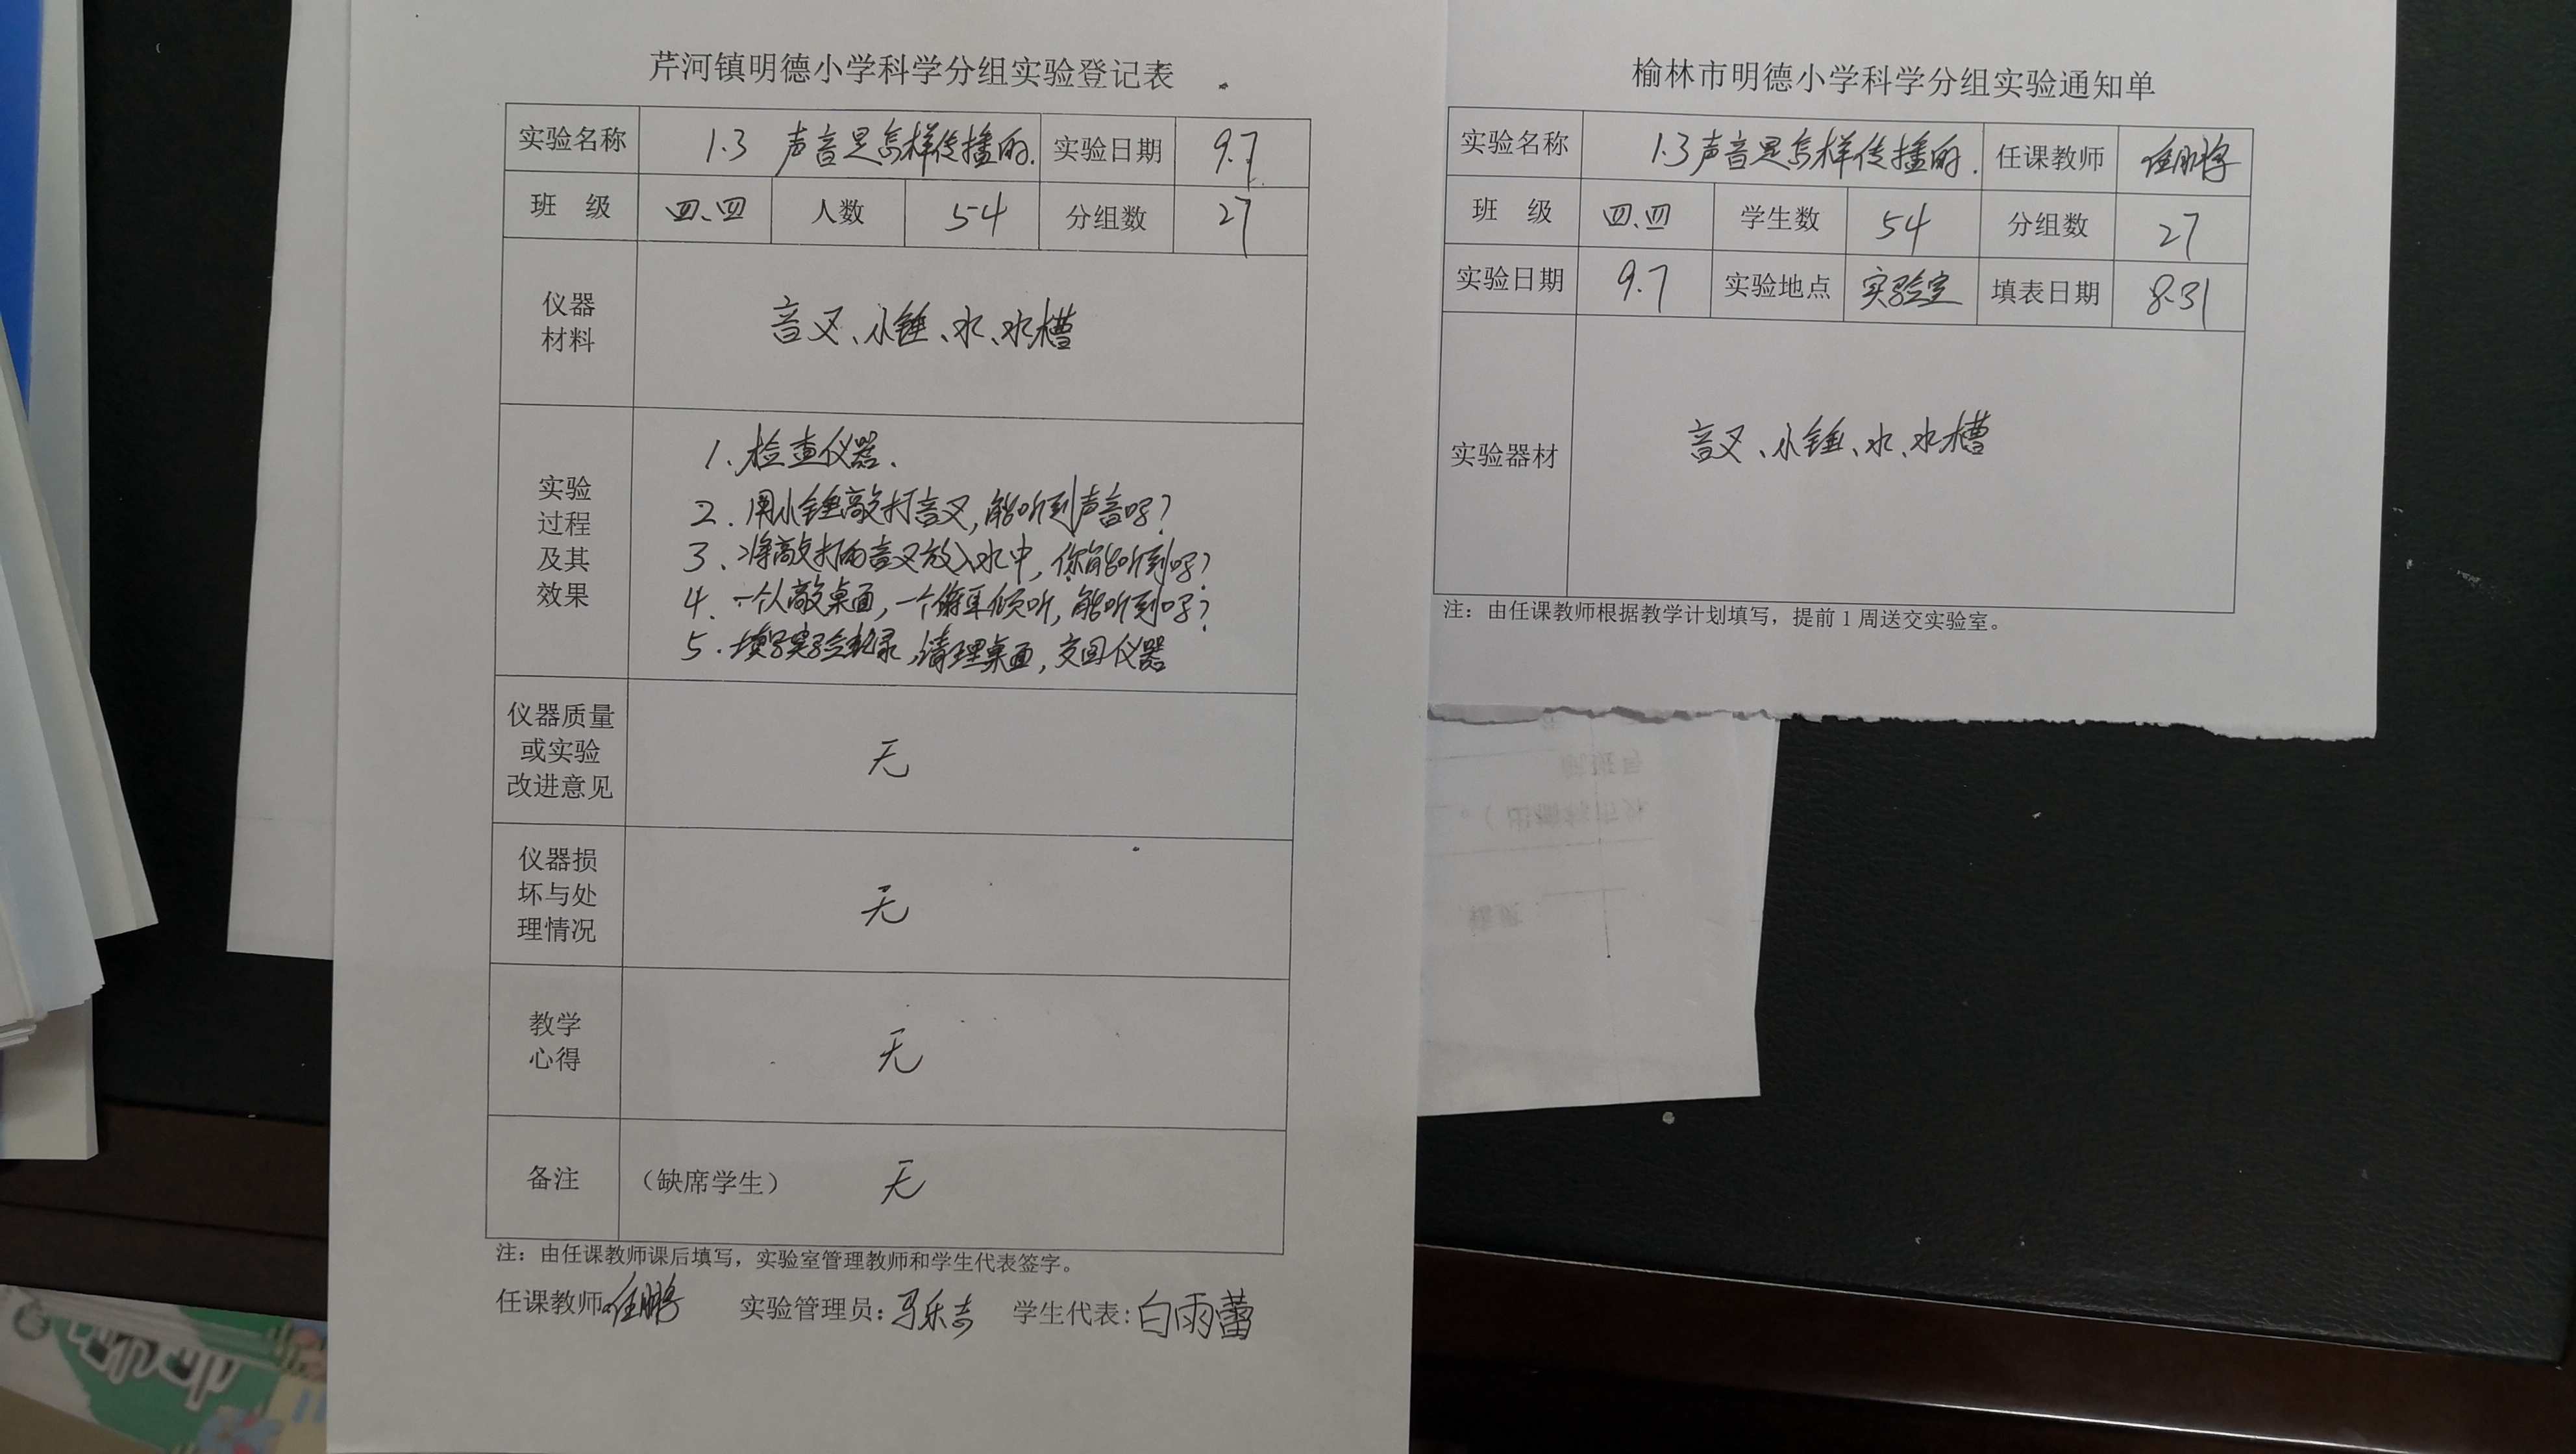 芹河镇明德小学科学分组实验登记表
实验名称 1.3 声音是怎样传播的. 实验日期 9.7
班 级 四、四 人数 54 分组数 27
仪器
材料
音叉、小锤、水、水槽
实验
过程
及其
效果
1. 检查仪器.
2. 用小锤敲打音叉,能听到声音吗?
3. 将敲打的音叉放入水中,你能听到吗?
4. 一个人敲桌面,一个俯耳倾听,能听到吗?
5. 填写实验记录,清理桌面,交回仪器
仪器质量
或实验
改进意见
无
仪器损
坏与处
理情况
无
教学
心得
无
备注 (缺席学生) 无
注: 由任课教师课后填写,实验室管理教师和学生代表签字。
任课教师 任鹏 实验管理员: 学生代表: 白雨蕾
榆林市明德小学科学分组实验通知单
实验名称 1.3 声音是怎样传播的. 任课教师 任鹏
班 级 四、四 学生数 54 分组数 27
实验日期 9.7 实验地点 实验室 填表日期 8.31
实验器材 音叉、小锤、水、水槽
注: 由任课教师根据教学计划填写,提前 1 周送交实验室。